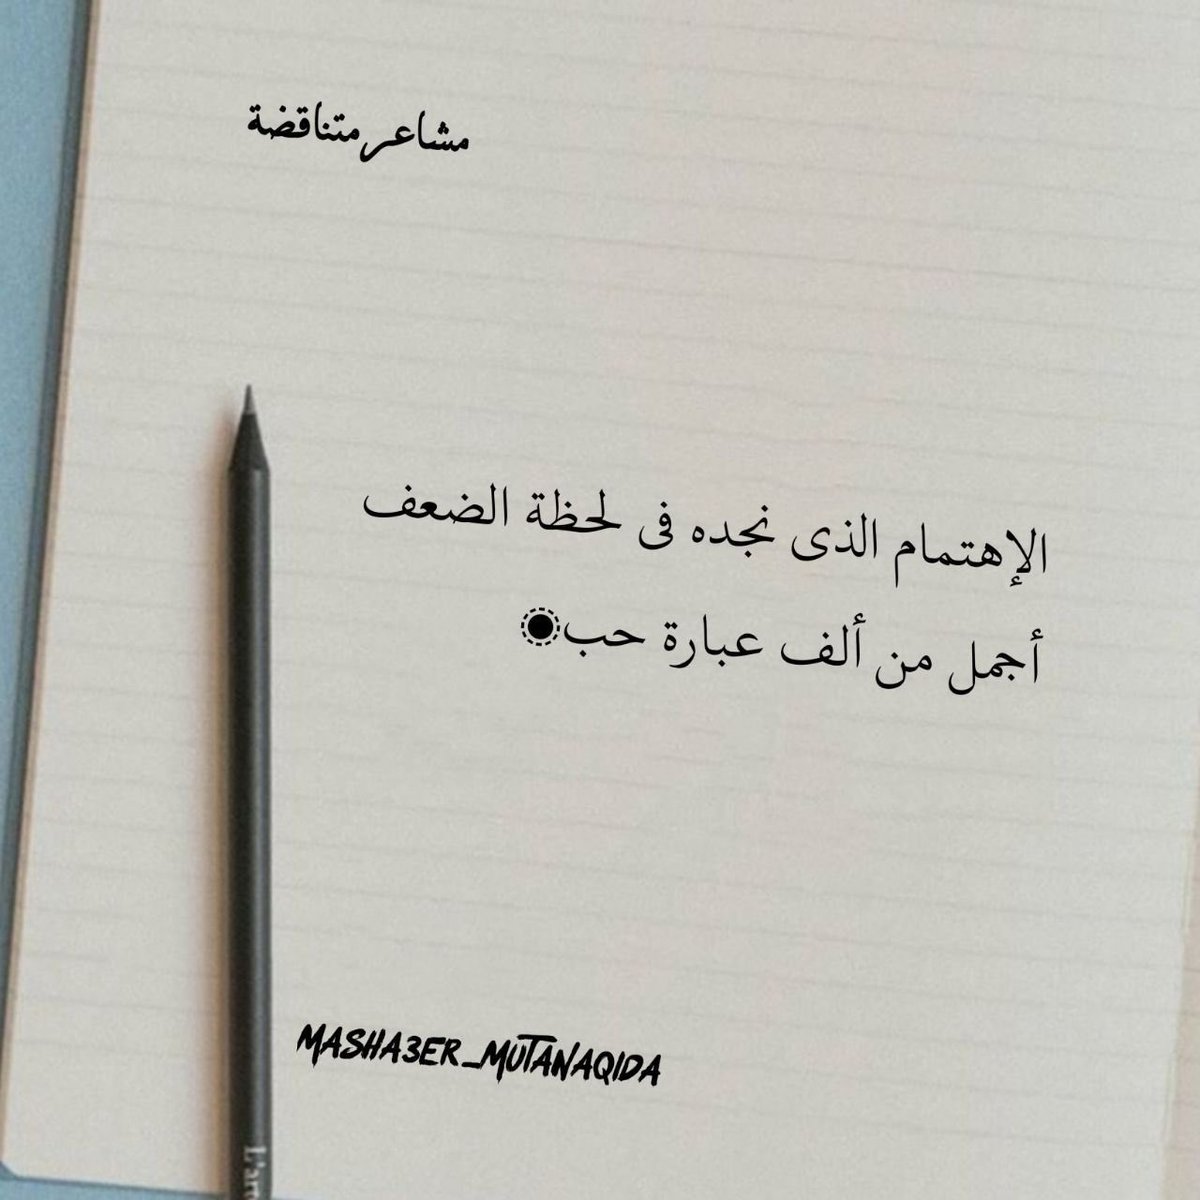 مشاعر متناقضة
الإهتمام الذى نجده فى لحظة الضعف
أجمل من ألف عبارة حب
MASHA3ER_MUTANAQIDA
L'ar